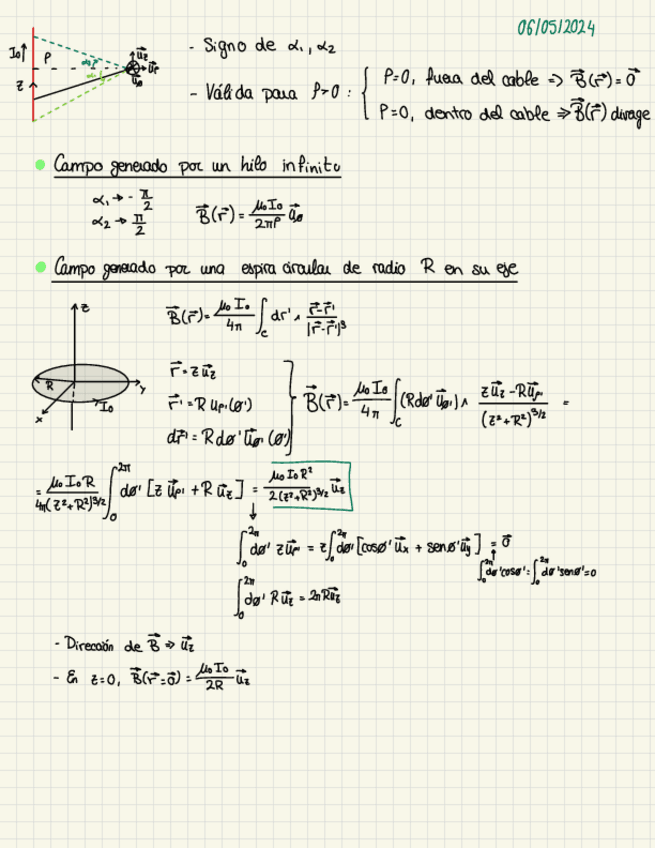 06/05/2024
I₀↑ ρ α₂ α₁ u⃗z u⃗ρ u⃗ø
z
- Signo de α₁, α₂
- Válida para ρ>0 : { ρ=0, fuera del cable => B⃗(r⃗)=0⃗
ρ=0, dentro del cable => B⃗(r⃗) diverge
Campo generado por un hilo infinito
α₁ → -π/2
α₂ → π/2
B⃗(r⃗) = μ₀I₀/2πρ u⃗ø
Campo generado por una espira circular de radio R en su eje
z
R y
x I₀
B⃗(r⃗) = μ₀I₀/4π ∫c dr⃗' ∧ r⃗-r⃗'/|r⃗-r⃗'|³
r⃗ = z u⃗z
r⃗' = R uρ'(ø')
dr⃗' = R dø' u⃗ø'(ø')
} B⃗(r⃗) = μ₀I₀/4π ∫c (Rdø' u⃗ø') ∧ zu⃗z - Ru⃗ρ'/(z²+R²)^3/2 =
= μ₀I₀R/4π(z²+R²)^3/2 ∫₀^2π dø' [z u⃗ρ' + R u⃗z] = μ₀I₀R²/2(z²+R²)^3/2 u⃗z
↓
∫₀^2π dø' z u⃗ρ' = z∫₀^2π dø' [cosø' u⃗x + senø' u⃗y] = 0⃗
∫₀^2π dø' cosø' = ∫₀^2π dø' senø' = 0
∫₀^2π dø' R u⃗z = 2πRu⃗z
- Dirección de B⃗ => u⃗z
- En z=0, B⃗(r⃗=0⃗) = μ₀I₀/2R u⃗z